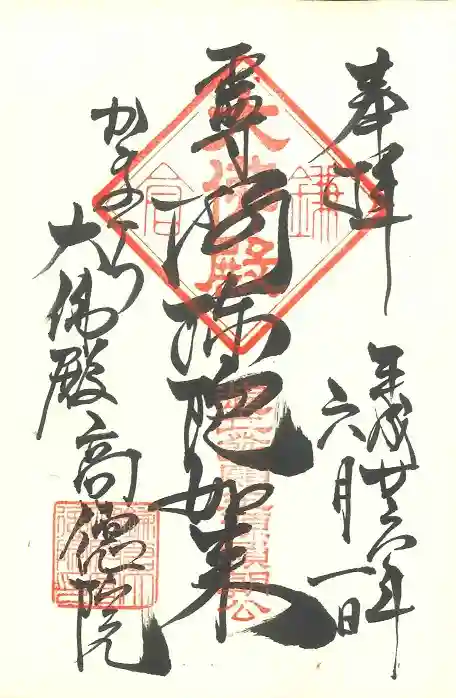 奉拝
平成廿六年
六月一日
阿弥陀如来
かまくら
大佛殿高徳院
鎌倉
大佛殿